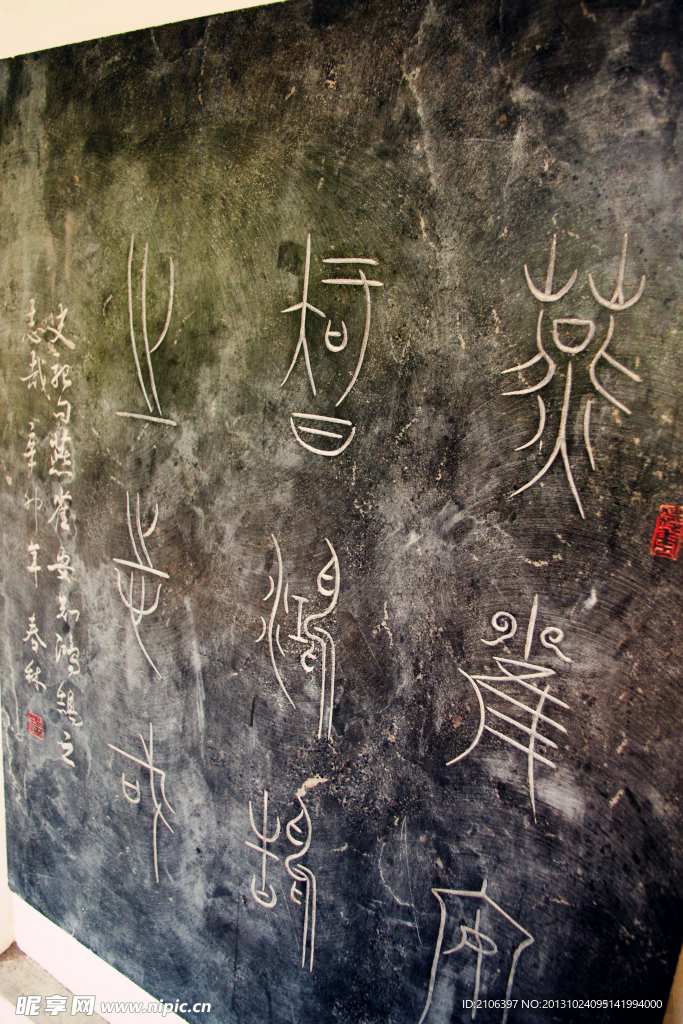 燕雀安
智鴻鵠
之志哉
史記句燕雀安知鴻鵠之
志哉 辛卯年 春林
昵享网 www.nipic.cn
ID:2106397 NO:20131024095141994000